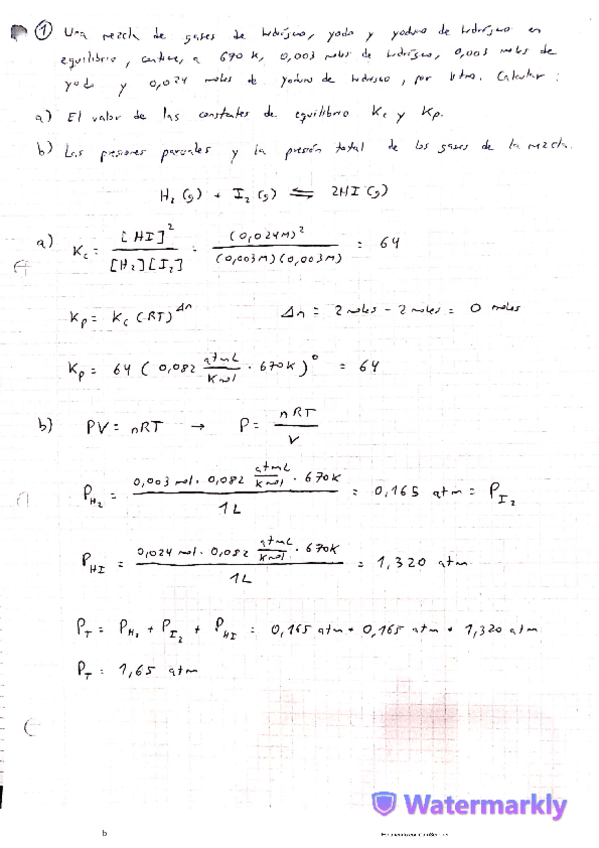 ① Una mezcla de gases de hidrógeno, yodo y yoduro de hidrógeno en
equilibrio, contiene, a 690 K, 0,003 moles de hidrógeno, 0,003 moles de
yodo y 0,024 moles de yoduro de hidrógeno, por litro. Calcular:
a) El valor de las constantes de equilibrio Kc y Kp.
b) Las presiones parciales y la presión total de los gases de la mezcla.
H₂ (g) + I₂ (g) ⇌ 2HI (g)
a) Kc = [HI]² / [H₂][I₂] = (0,024M)² / (0,003M)(0,003M) = 64
Kp = Kc (RT)^Δn Δn = 2 moles - 2 moles = 0 moles
Kp = 64 (0,082 atmL/Kmol · 670K)⁰ = 64
b) PV = nRT → P = nRT / V
P_H₂ = 0,003 mol · 0,082 atmL/Kmol · 670K / 1L = 0,165 atm = P_I₂
P_HI = 0,024 mol · 0,082 atmL/Kmol · 670K / 1L = 1,320 atm
P_T = P_H₂ + P_I₂ + P_HI = 0,165 atm + 0,165 atm + 1,320 atm
P_T = 1,65 atm
Watermarkly
b